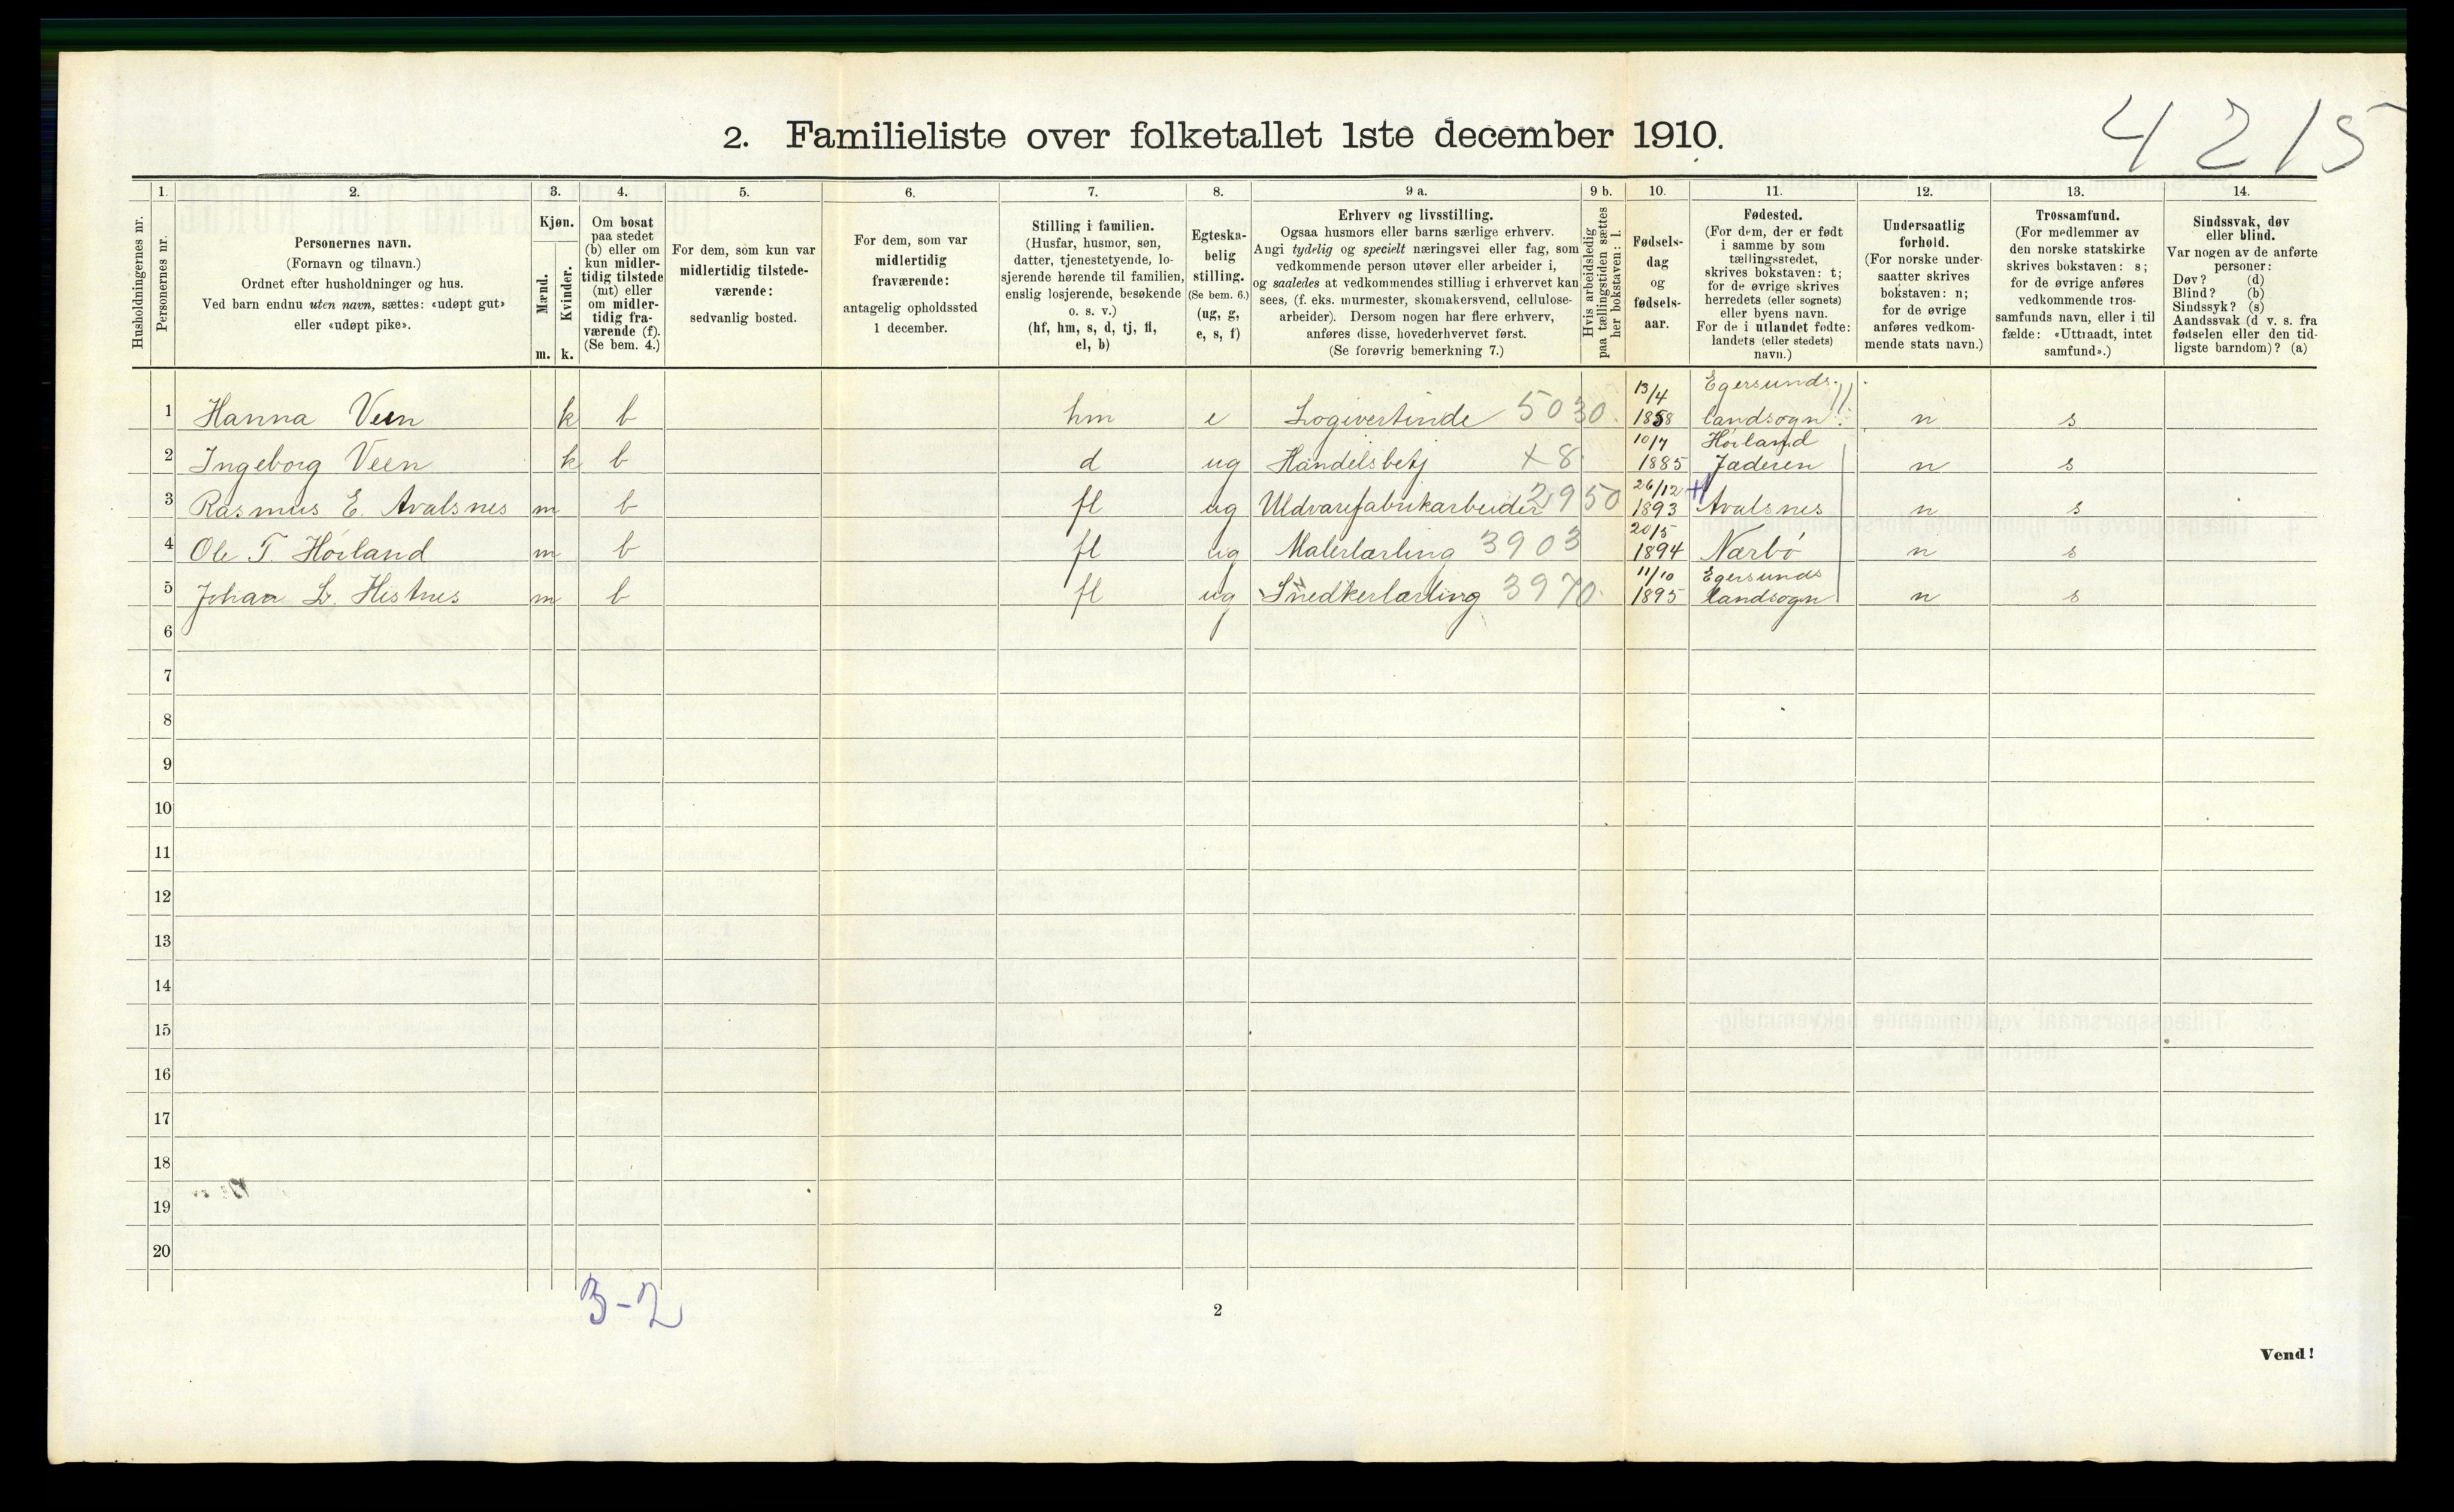 4215
2. Familieliste over folketallet 1ste december 1910.
1. 2. 3. 4. 5. 6. 7. 8. 9 a. 9 b. 10. 11. 12. 13. 14.
Husholdningernes nr.
Personernes nr.
Personernes navn.
(Fornavn og tilnavn.)
Ordnet efter husholdninger og hus.
Ved barn endnu uten navn, sættes: «udøpt gut»
eller «udøpt pike».
Kjøn.
Mænd.
Kvinder.
m. k.
Om bosat
paa stedet
(b) eller om
kun midler-
tidig tilstede
(mt) eller
om midler-
tidig fra-
værende (f).
(Se bem. 4.)
For dem, som kun var
midlertidig tilstede-
værende:
sedvanlig bosted.
For dem, som var
midlertidig
fraværende:
antagelig opholdssted
1 december.
Stilling i familien.
(Husfar, husmor, søn,
datter, tjenestetyende, lo-
sjerende hørende til familien,
enslig losjerende, besøkende
o. s. v.)
(hf, hm, s, d, tj, fl,
el, b)
Egteska-
belig
stilling.
(Se bem. 6.)
(ug, g,
e, s, f)
Erhverv og livsstilling.
Ogsaa husmors eller barns særlige erhverv.
Angi tydelig og specielt næringsvei eller fag, som
vedkommende person utøver eller arbeider i,
og saaledes at vedkommendes stilling i erhvervet kan
sees, (f. eks. murmester, skomakersvend, cellulose-
arbeider). Dersom nogen har flere erhverv,
anføres disse, hovederhvervet først.
(Se forøvrig bemerkning 7.)
Hvis arbeidsledig
paa tællingstiden sættes
her bokstaven: l.
Fødsels-
dag
og
fødsels-
aar.
Fødested.
(For dem, der er født
i samme by som
tællingsstedet,
skrives bokstaven: t;
for de øvrige skrives
herredets (eller sognets)
eller byens navn.
For de i utlandet fødte:
landets (eller stedets)
navn.)
Undersaatlig
forhold.
(For norske under-
saatter skrives
bokstaven: n;
for de øvrige
anføres vedkom-
mende stats navn.)
Trossamfund.
(For medlemmer av
den norske statskirke
skrives bokstaven: s;
for de øvrige anføres
vedkommende tros-
samfunds navn, eller i til
fælde: «Uttraadt, intet
samfund».)
Sindssvak, døv
eller blind.
Var nogen av de anførte
personer:
Døv? (d)
Blind? (b)
Sindssyk? (s)
Aandssvak (d v. s. fra
fødselen eller den tid-
ligste barndom)? (a)
1 Hanna Veen k b hm e Logivertinde 5030 13/4 1858 Egersunds landsogn n s
2 Ingeborg Veen k b d ug Handelsbetj +8 10/7 1885 Høiland Jæderen n s
3 Rasmus E. Avalsnes m b fl ug Uldvarefabrikarbeider 2950 26/12 1893 + Avalsnes n s
4 Ole T. Høiland m b fl ug Malerlærling 3903 20/5 1894 Nærbø n s
5 Johan L. Hestnes m b fl ug Snedkerlærling 3970 11/10 1895 Egersunds landsogn n s
6
7
8
9
10
11
12
13
14
15
16
17
18
19
20
3-2
2
Vend!